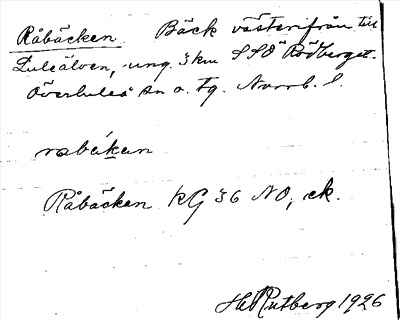 Råbäcken. Bäck västerifrån till
Luleälven, ung. 3 km SSÖ Rödberget.
Överluleå sn o. tg. Norrb. l.
rabäkan
Råbäcken KG 36 NO, ek.
Hd Rutberg 1926